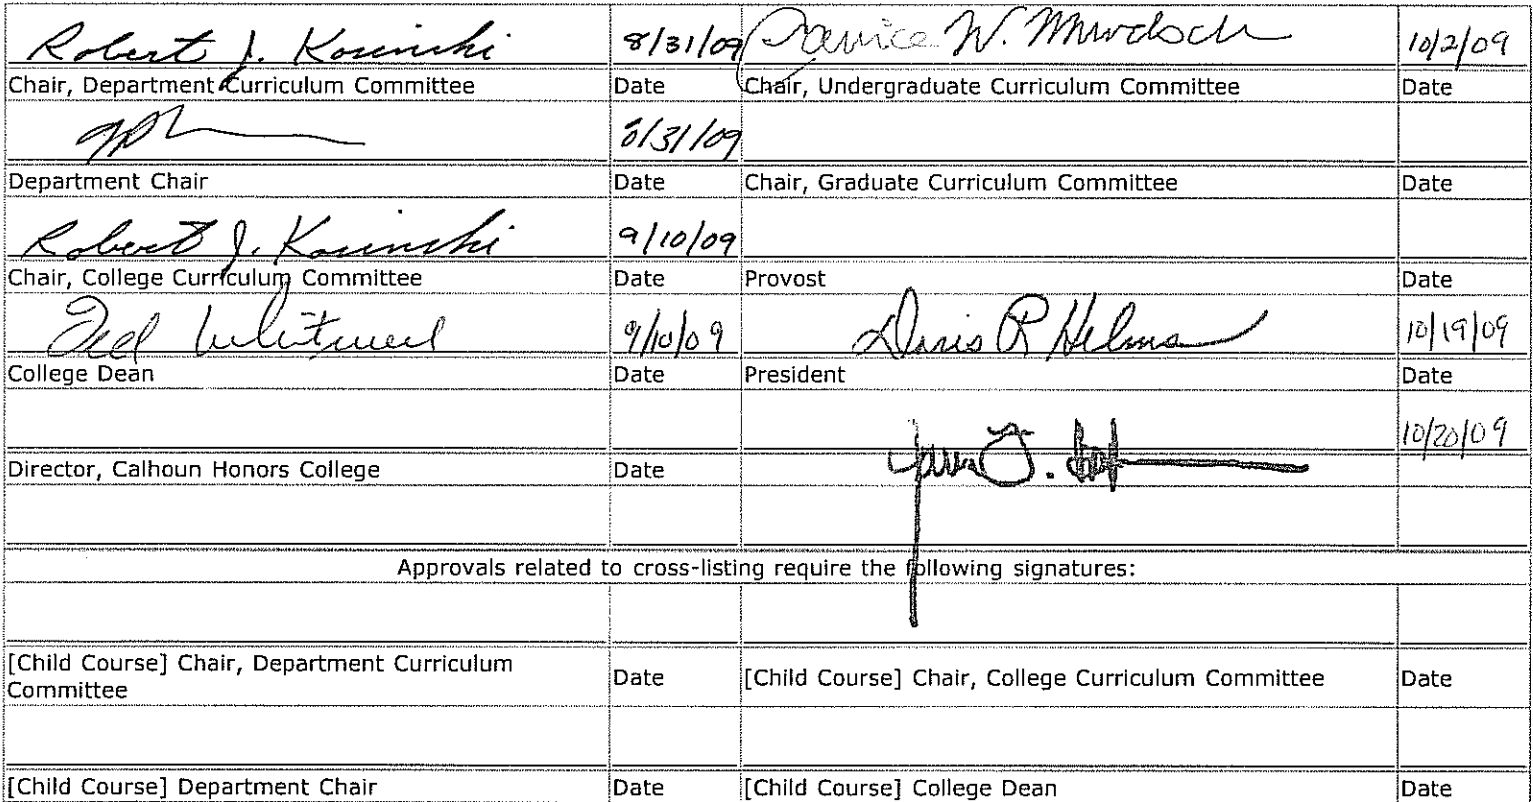 Robert J. Kosinski 8/31/09 Janice W. Murdoch 10/2/09
Chair, Department Curriculum Committee Date Chair, Undergraduate Curriculum Committee Date
8/31/09
Department Chair Date Chair, Graduate Curriculum Committee Date
Robert J. Kosinski 9/10/09
Chair, College Curriculum Committee Date Provost Date
Ted Whitwell 9/10/09 Doris R Helms 10/19/09
College Dean Date President Date
10/20/09
Director, Calhoun Honors College Date
Approvals related to cross-listing require the following signatures:
[Child Course] Chair, Department Curriculum
Committee Date [Child Course] Chair, College Curriculum Committee Date
[Child Course] Department Chair Date [Child Course] College Dean Date